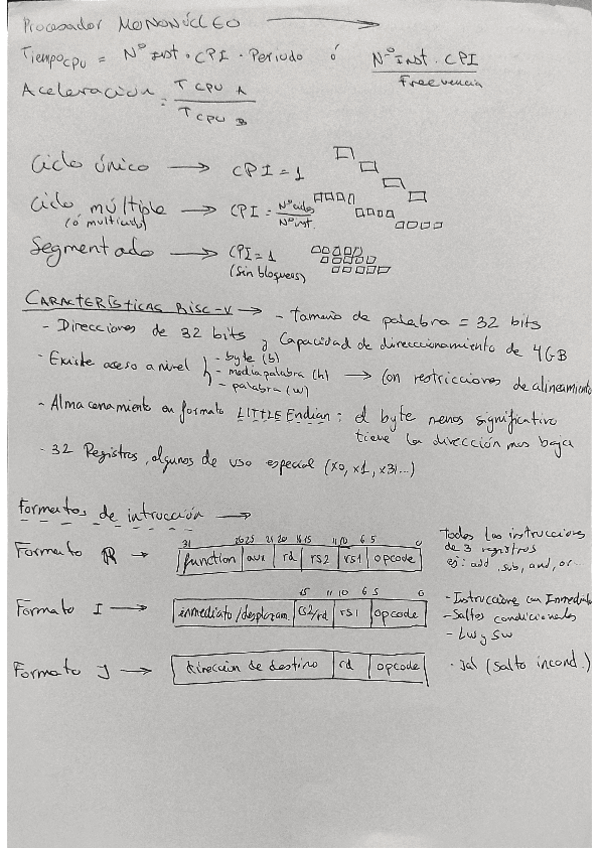 Procesador MONONÚCLEO →
Tiempo CPU = Nº Inst · CPI · Periodo ó Nº Inst · CPI / Frecuencia
Aceleración = T CPU A / T CPU B
Ciclo único → CPI = 1
Ciclo múltiple → CPI = Nº ciclos / Nº inst.
(ó multiciclo)
Segmentado → CPI = 1
(Sin bloqueos)
CARACTERÍSTICAS RISC-V → - tamaño de palabra = 32 bits
- Direcciones de 32 bits y Capacidad de direccionamiento de 4GB
- Existe acceso a nivel - byte (b)
- media palabra (h) → Con restricciones de alineamiento
- palabra (w)
- Almacenamiento en formato LITTLE Endian: el byte menos significativo
tiene la dirección mas baja
- 32 Registros, algunos de uso especial (x0, x1, x31...)
Formatos de intrucción →
31 26 25 21 20 16 15 11 10 6 5 0
Formato R → function aux rd rs2 rs1 opcode
Todas las instrucciones
de 3 registros
ej: add, sub, and, or...
15 11 10 6 5 0
Formato I → inmediato/desplazam. rs2/rd rs1 opcode
- Instrucciones con Inmediato
- Saltos condicionales
- Lw y Sw
Formato J → dirección de destino rd opcode · Jal (salto incond.)